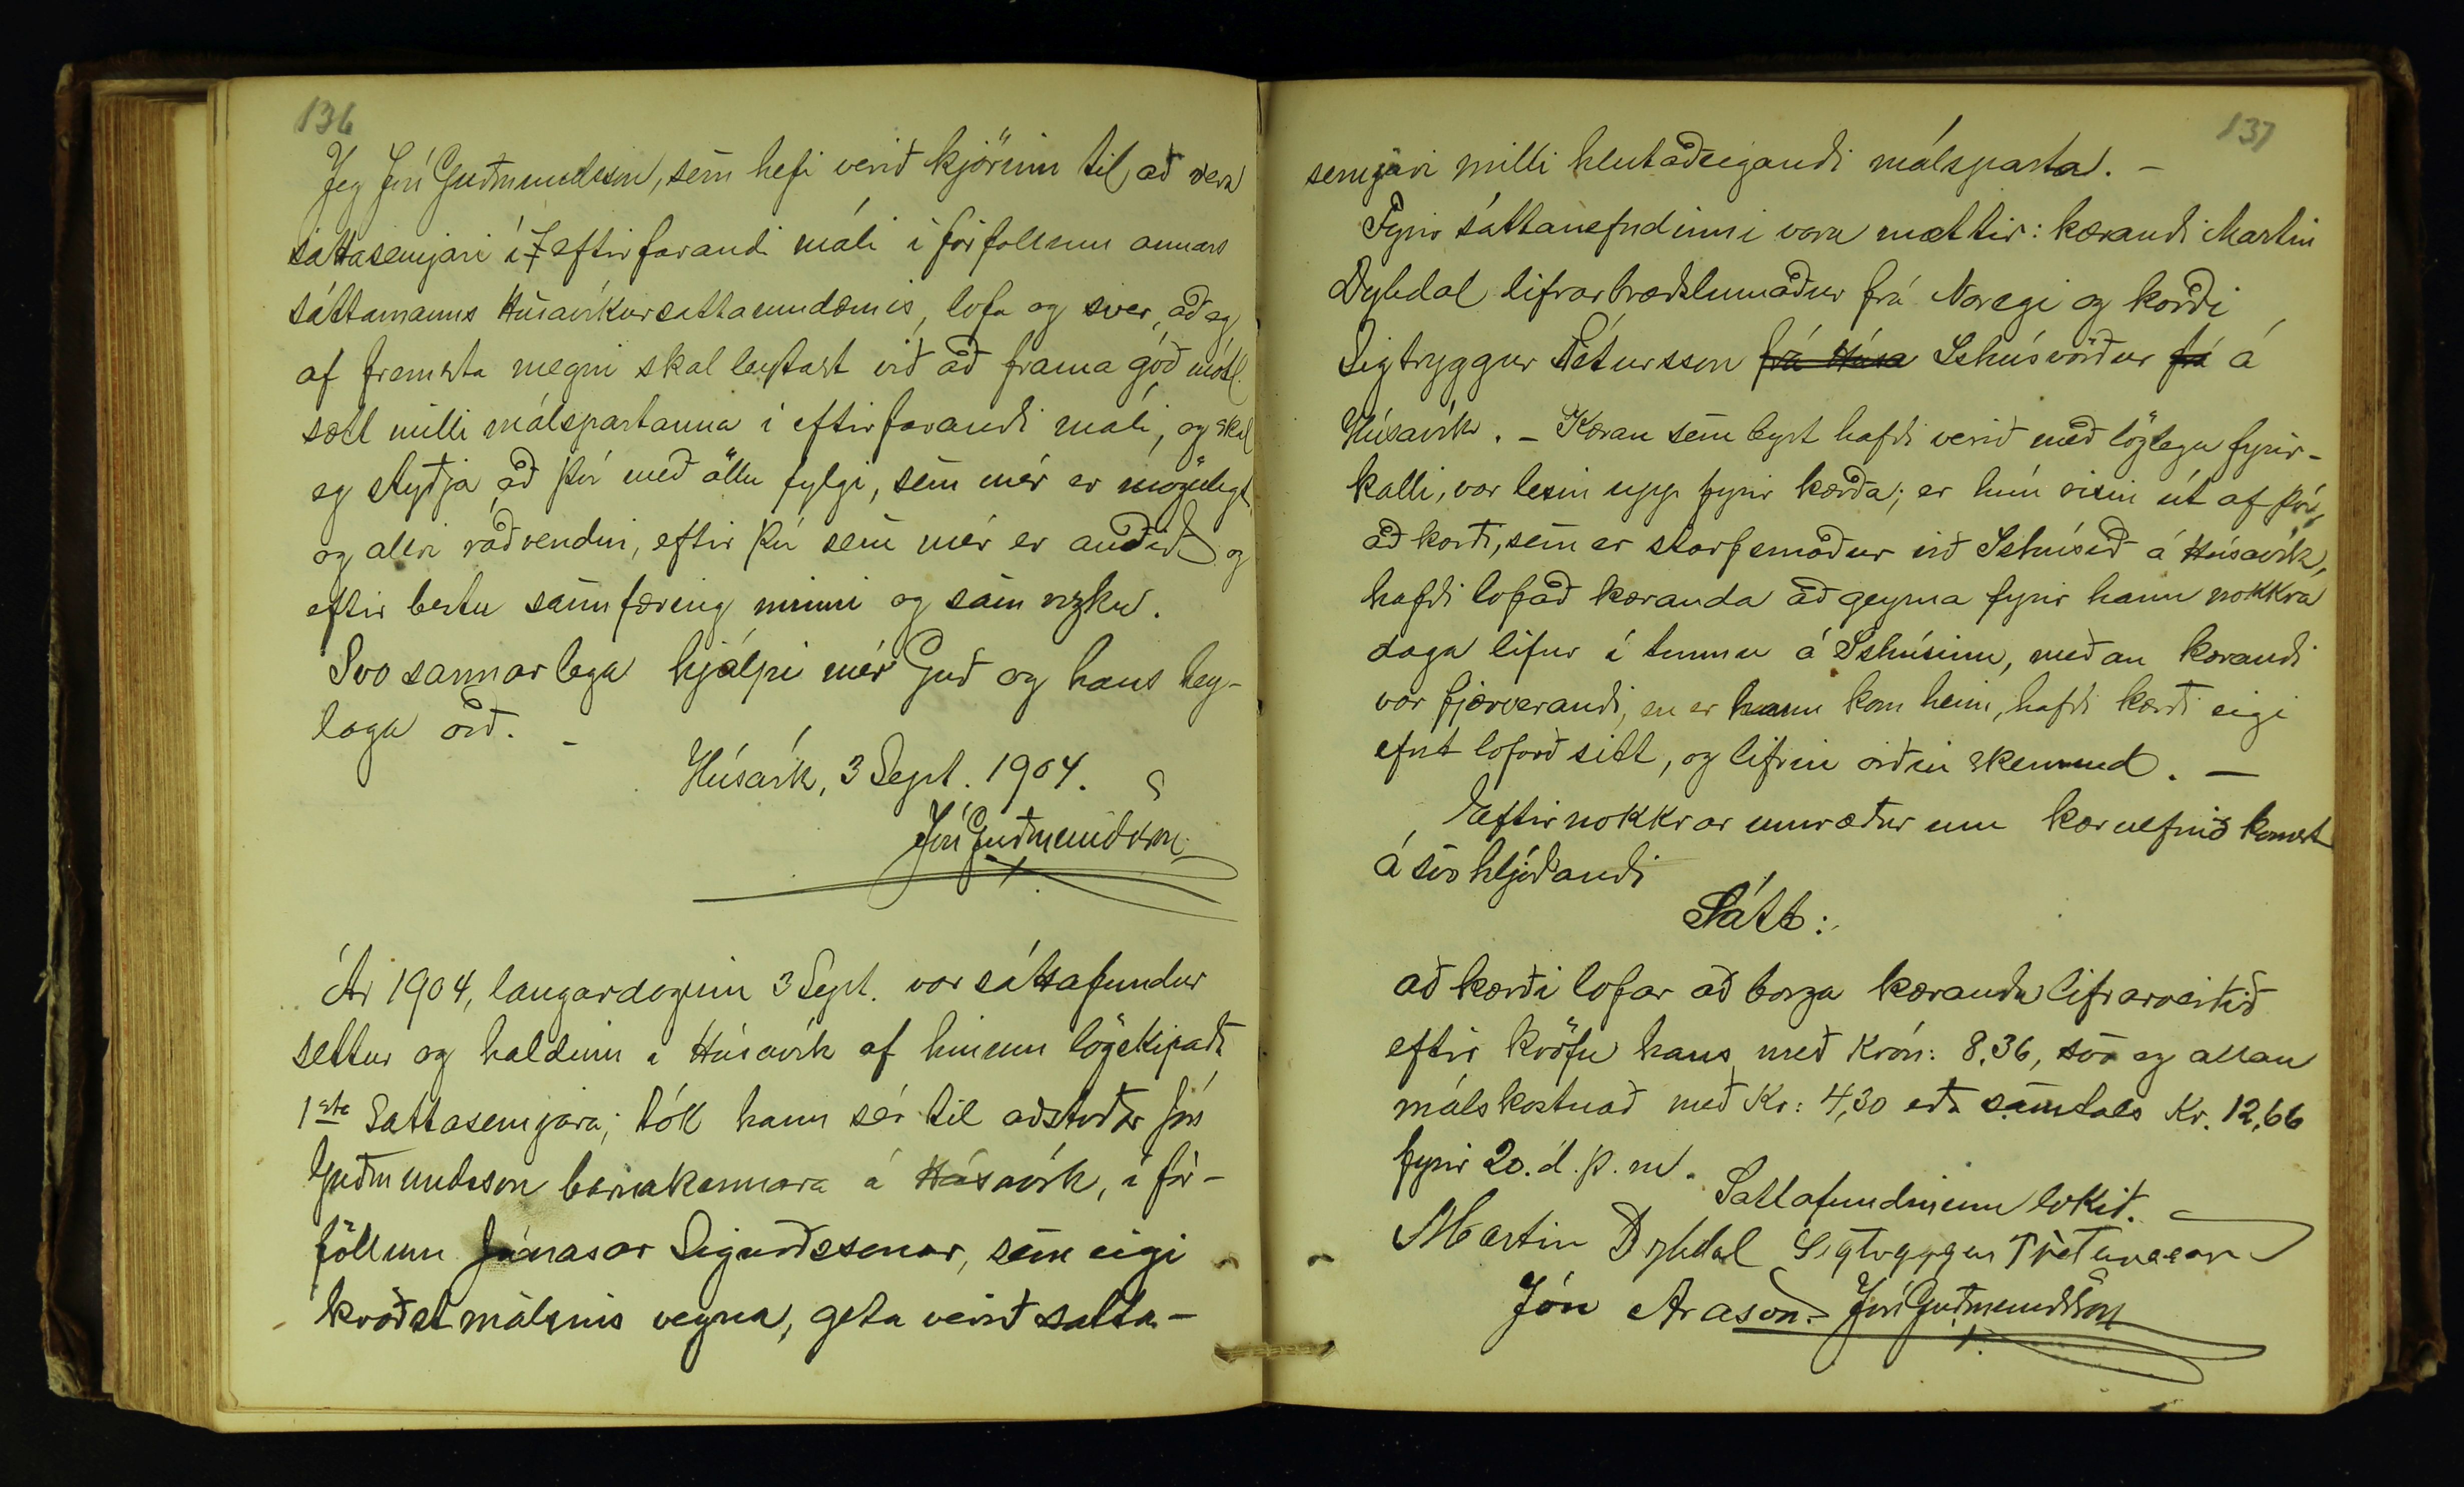 136
Jeg Jón Guðmundsson, sem hefi verið kjörinn til að vera
sáttasemjari í eftirfarandi máli í forföllum annars
sáttamanns Húsavíkursáttaumdæmis, lofa og sver, að eg
af fremsta megni skal leytast við að frama góð
sætt milli málspartanna í eftirfarandi máli, og skal
eg styðja að því með öllu fylgi, sem mér er mögulegt
og allri ráðvendni, eftir því sem mér er auðið og
eftir bestu sannfæring minni og samvizku.
Svo sannarlega hjálpi mér Guð og hans hey-
laga orð. -
Húsavík, 3 Sept. 1904.
Jón Guðmundsson
Ár 1904, laugardaginn 3 Sept. var sáttafundur
settur og haldinn á Húsavík af hinum lögskipaða
1sta Sáttasemjara; tók hann sér til aðstoðar Jón
Guðmundsson barnakennara á Húsavík, í for-
föllum Jónasar Sigurðssonar, sem eigi
kvaðst málsins vegna, geta verið sátta-
137
semjari milli hlutaðeigandi málsparta. -
Fyrir sáttanefndinni voru mættir: kærandi Martin
Dybdal lifrarbræðslumaður frá Noregi og kærði
Sigtryggur Pétursson frá Húsa Íshúsvörður frá á
Húsavík. - Kæran sem lýst hafði verið með löglegu fyrir-
kalli, var lesin upp fyrir kærða; er hún risin út af því,
að kærði, sem er starfsmaður við Íshúsið á Húsavík,
hafði lofað kæranda að geyma fyrir hann nokkra
daga lifur í tunnu á Íshúsinu, meðan kærandi
var fjærverandi, en er hann kom heim, hafði kærði eigi
efnt loforð sitt, og lifrin orðin skemmd. -
Eftir nokkrar umræður um kæruefnið komst
á svo hljóðandi
Sátt:
að kærði lofar að borga kæranda lifrarverðið
eftir kröfu hans með Krón: 8,36, svo og allan
málskostnað með Kr: 4,30 eða samtals Kr. 12,66
fyrir 20. d. þ. m.
Sáttafundinum lokið.
Martin Dybdal Sigtryggur Pétursson
Jón Arason. Jón Guðmundsson